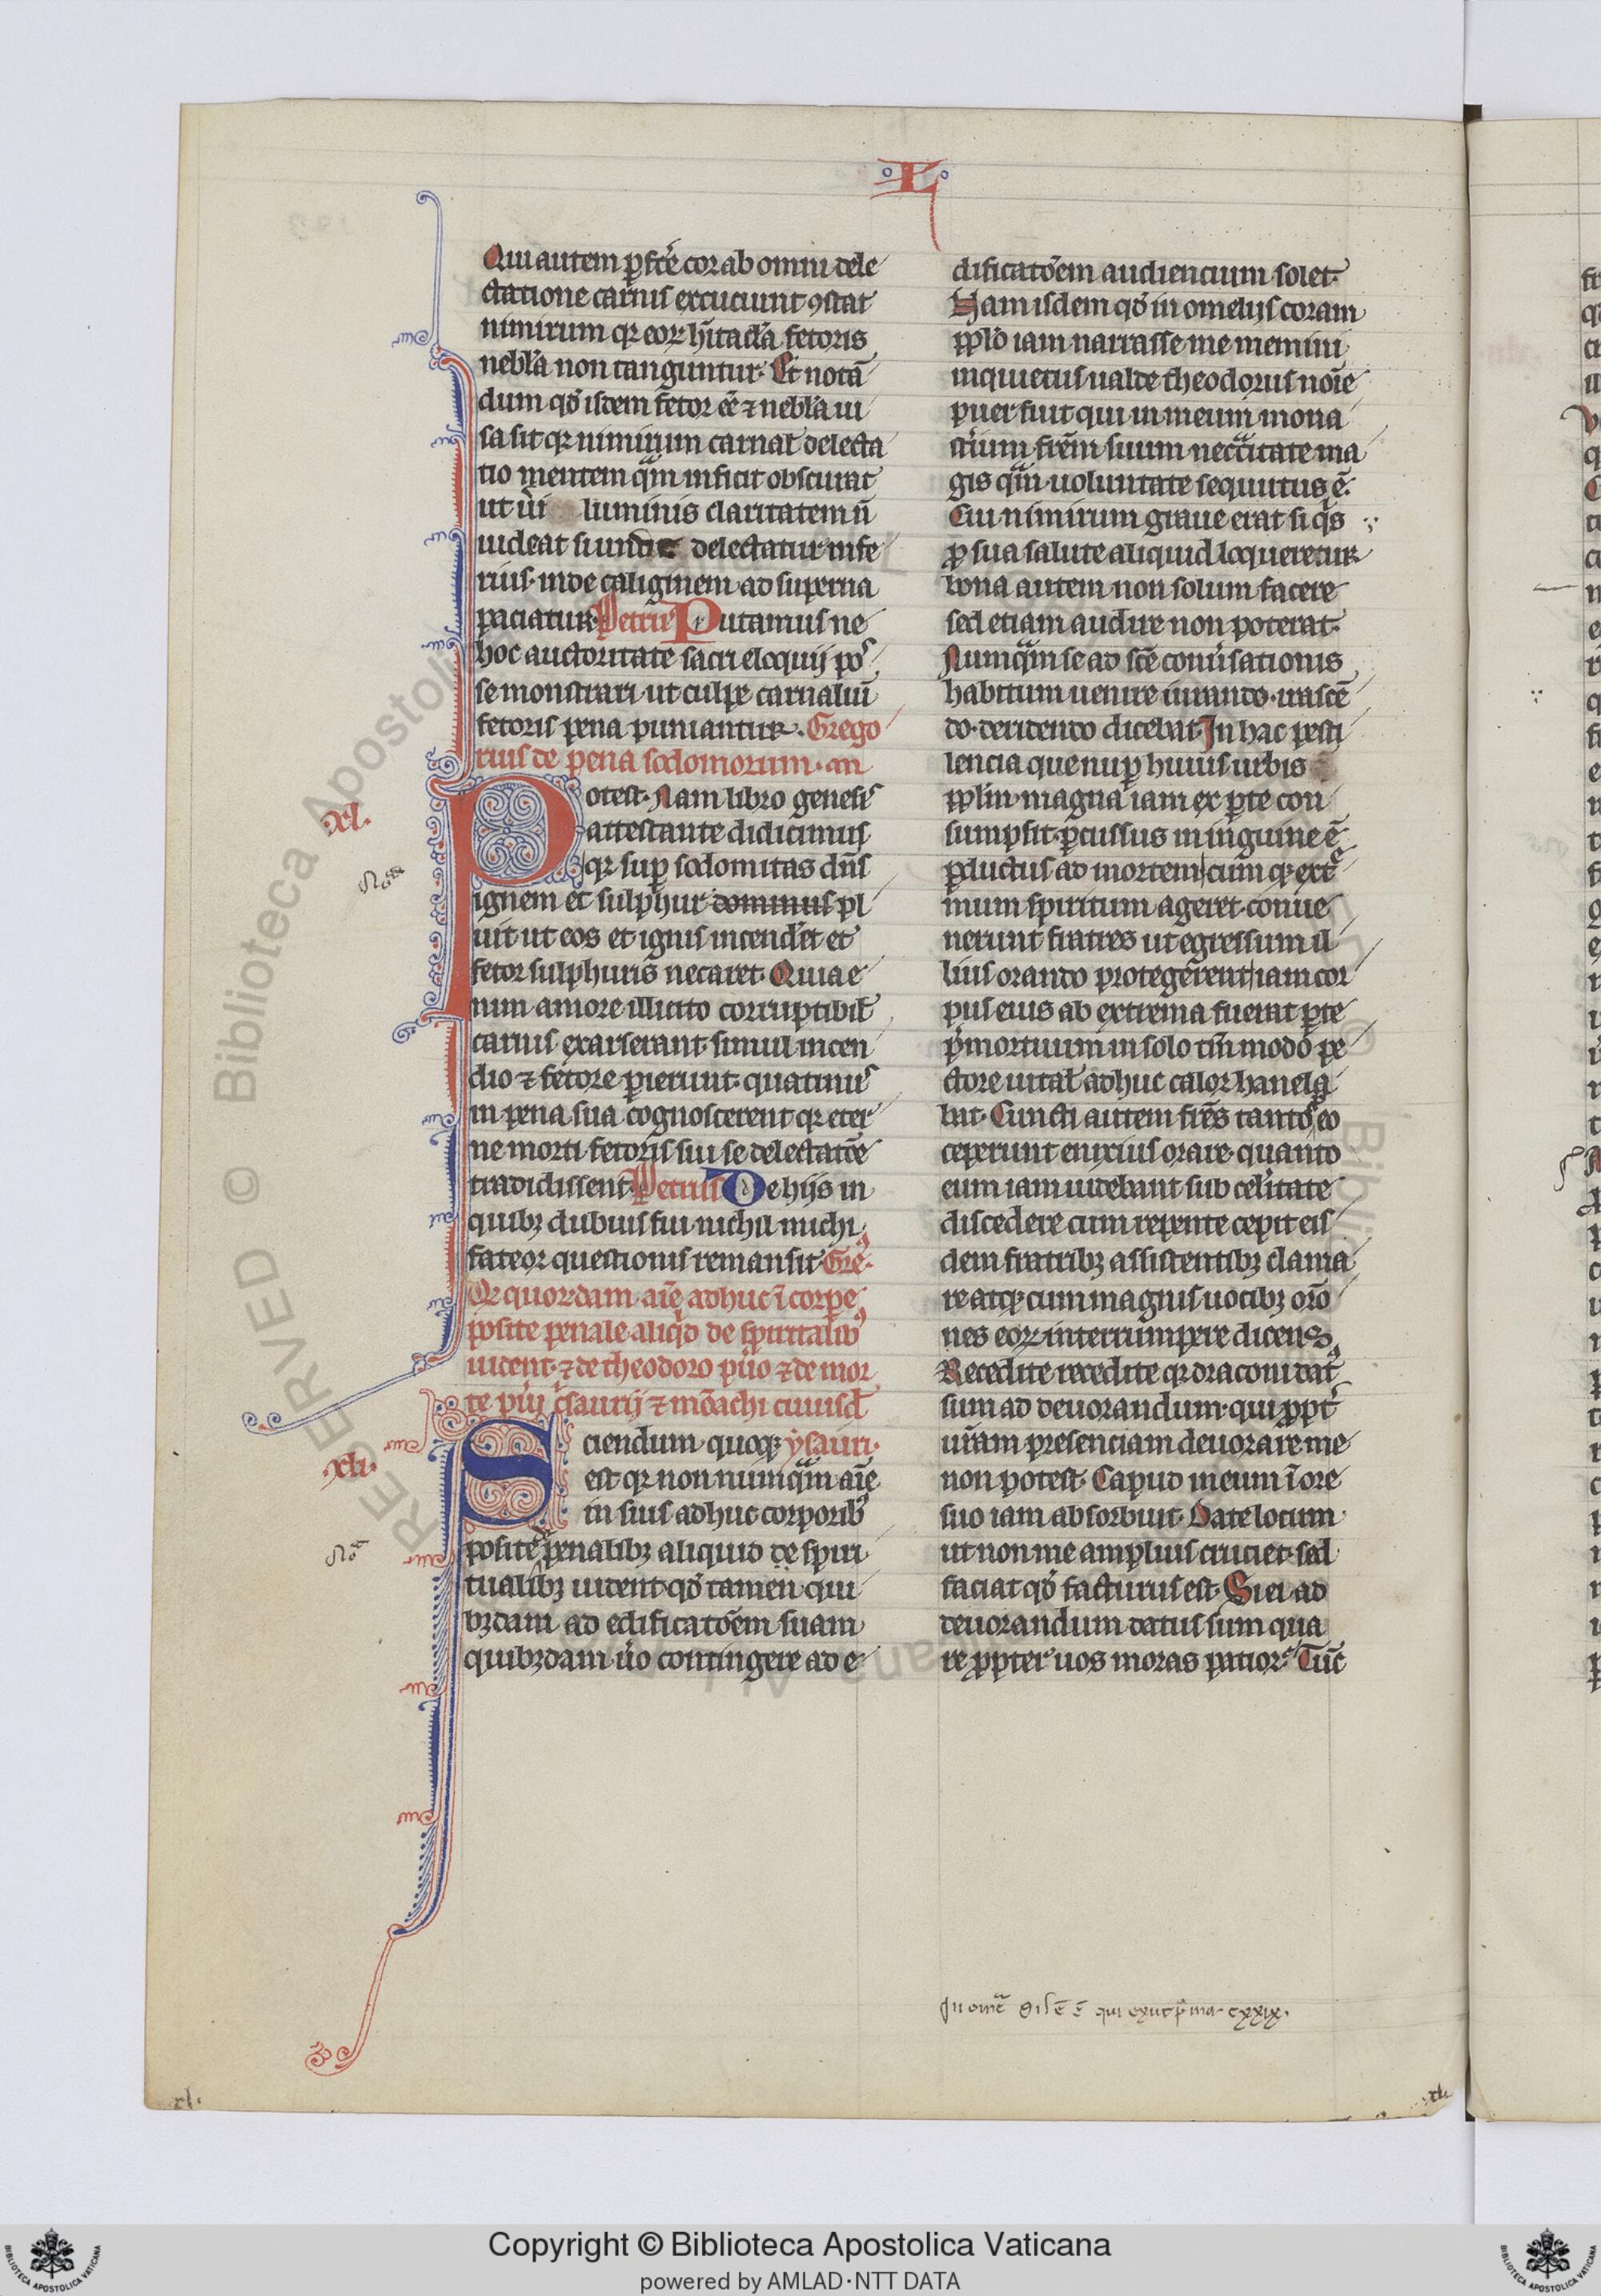 L
Qui autem ꝑfcẽ cor ab omni dele
ctatione carnis excuciunt ꝯstat
nimirum qꝛ eoꝝ hĩtacl̃a fetoris
nebl̃a non tanguntur. Et notã
dum qđ idem fetor eẽ ⁊ nebl̃a ui
sa sit qꝛ nimirum carnal̃ delecta
tio mentem quã inficit obscurat
ut ueri luminis claritatem ñ
uideat si unde delectatur infe
rius inde caliginem ad superna
paciatur Petrus Putamus ne
hoc auctoritate sacri eloquij pos
se monstrari ut culpe carnaliũ
fetoris pena puniantur. Grego
rius de pena sodomorum. an
xl.
Potest. Nam libro genesis
attestante didicimus
Nota
qꝛ sup̱ sodomitas dñs
ignem et sulphur dominus pl
uit ut eos et ignis incenderet et
fetor sulphuris necaret. Quia e
nim amore illicito corruptibil̃
carnis exarserant simul incen
dio ⁊ fetore ꝑierunt. quatinus
in pena sua cognoscerent qꝛ eter
ne morti fetoris sui se delectatõe
tradidissent Petrus De hijs in
quibꝫ dubius fui nichil michi
fateor questionis remansit. Gre.
Qꝛ quorꝛdam aĩe adhuc ĩ corpe
posite penale aliqđ de spiritalibꝰ
uident ⁊ de theodoro pu̾o ⁊ de mor
te pu̾i crisaurij ⁊ mõachi cuiusđ
xli.
Sciendum quoqꝫ ysauri.
est qꝛ non nunquã aĩe
in suis adhuc corporibꝰ
Notã
posite de penalibꝫ aliquid de spiri
tualibꝫ uident qđ tamen qui
bꝫdam ad edificatõem suam
quibꝫdam u̾o contingere ad e
dificatõem audiencium solet.
Nam isdem qđ in omelijs coram
ppl̃o iam narrasse me memini
inquietus ualde theodorus noĩe
puer fuit qui in meum mona
st̾ium frẽm suum necc̃itate ma
gis quã uoluntate sequutus ẽ.
Cui nimirum graue erat si qͥs
ꝓ sua salute aliquid loqueretur
bona autem non solum facere
sed etiam audire non poterat.
Numquã se ad scẽ conu̾sationis
habitum uenire iurando. irascẽ
do. deridendo dicebat. In hac pesti
lencia que nuꝑ huius urbis
ppl̃m magna iam ex ꝑte con
sumpsit ꝑcussus in inguine ẽ
ꝑductus ad mortem cum qꝫ ext̾
mum spiritum ageret. conue
nerunt fratres ut egressum il
lius orando protegerent iam cor
pus eius ab extrema fuerat ꝑte
p̾mortuum in solo tm̃modo pe
ctore uital̃ adhuc calor hanela
bat. Cuncti autem frẽs tanto eo
ceperunt enixius orare. quanto
eum iam uidebant sub cel̾itate
discedere cum repente cepit eis
dem fratribꝫ assistentibꝫ clama
re atqꝫ cum magnis uocibꝫ orõ
nes eoꝝ interrumpere dicens
Recedite recedite qꝛ draconi datꝰ
sum ad deuorandum. qui ꝓpt̾
ur̃am presenciam deuorare me
non potest. Capud meum ĩ ore
suo iam absorbuit. Date locum
ut non me amplius cruciet. sed
faciat qđ facturus est. Si ei ad
deuorandum datus sum qua
re ꝓpter uos moras patior. Tũc
xl.
xl.
RESERVED © Biblioteca Apostolica
Copyright © Biblioteca Apostolica Vaticana
powered by AMLAD·NTT DATA
BIBLIOTECA APOSTOLICA VATICANA
BIBLIOTECA APOSTOLICA VATICANA